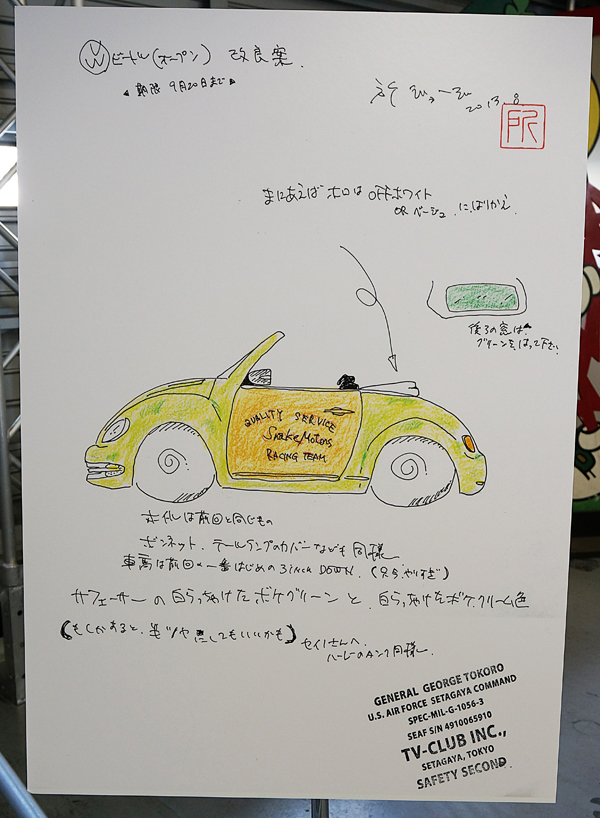 VW ビートル(オープン) 改良案.
◀ 期限 9月20日まで ▶
2013.8
所
まにあえば ホロは OFFホワイト
OR ベージュ に、はりかえ.
後ろの窓は
グリーンを、はって下さい
QUALITY SERVICE
Snake Motors
RACING TEAM
ホイルは前回と同じもの
ボンネット、テールランプのカバーなども 同様
車高は前回の一番はじめの3inch DOWN. (只今、やりすぎ)
サフェーサーの 白っちゃけたボケグリーンと、白っちゃけたボケ、クリーム色
(もしかすると、半ツヤ消してもいいかも)
ハーレーのタンク同様
GENERAL GEORGE TOKORO
U.S. AIR FORCE SETAGAYA COMMAND
SPEC-MIL-G-1056-3
SEAF S/N 4910065910
TV-CLUB INC.,
SETAGAYA, TOKYO
SAFETY SECOND.